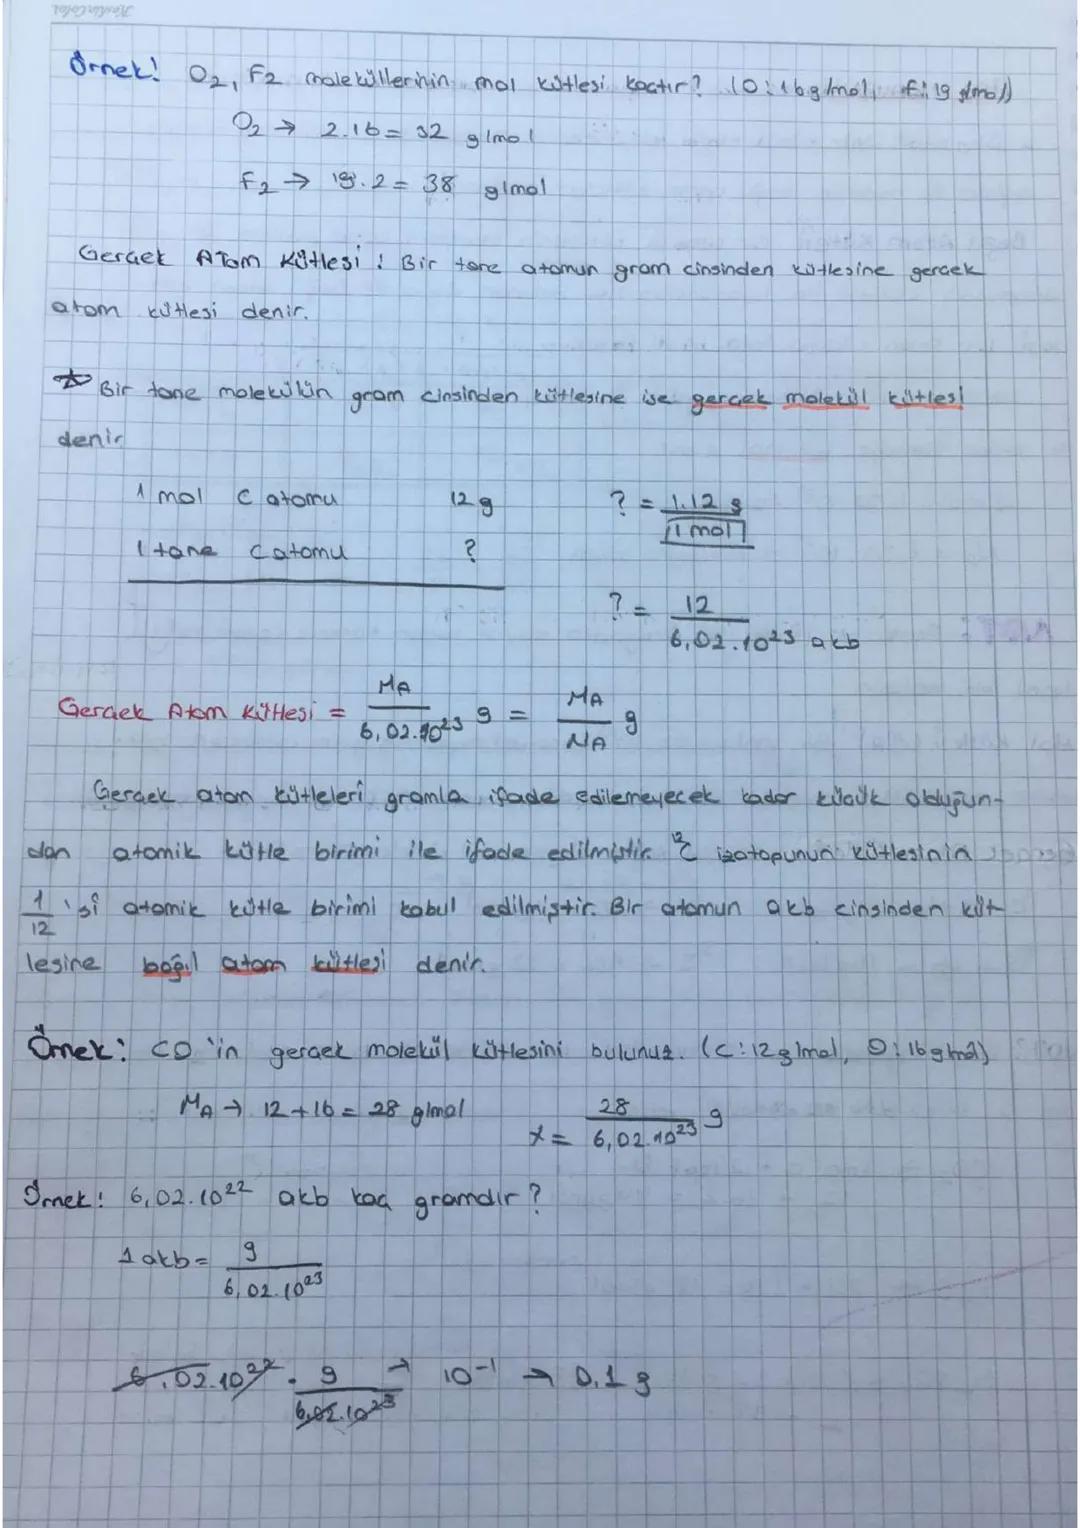 Örnek! O2, F2 moleküllerinin mol kütlesi kaçtır? (O:16g/mol, F:19 g/mol)
O2 → 2.16 = 32 g/mol
F2 → 19.2 = 38 g/mol
Gerçek Atom Kütlesi : Bir tane atomun gram cinsinden kütlesine gerçek
atom kütlesi denir.
☆ Bir tane molekülün gram cinsinden kütlesine ise gerçek molekül kütlesi
denir
1 mol C atomu 12 g ? = 1.12 g / 1 mol
1 tane C atomu ?
? = 12 / 6,02.10²³ akb
Gerçek Atom Kütlesi = MA / 6,02.10²³ g = MA / NA g
Gerçek atom kütleleri gramla ifade edilemeyecek kadar küçük olduğun-
dan atomik kütle birimi ile ifade edilmiştir. ¹²C izotopunun kütlesinin
1/12 'si atomik kütle birimi kabul edilmiştir. Bir atomun akb cinsinden küt-
lesine bağıl atom kütlesi denir.
Örnek: CO 'in gerçek molekül kütlesini bulunuz. (C:12g/mol, O:16g/mol)
MA → 12+16 = 28 g/mol x = 28 / 6,02.10²³ g
Örnek: 6,02.10²² akb kaç gramdır?
1 akb = g / 6,02.10²³
6,02.10²² . g / 6,02.10²³ → 10⁻¹ → 0,1 g